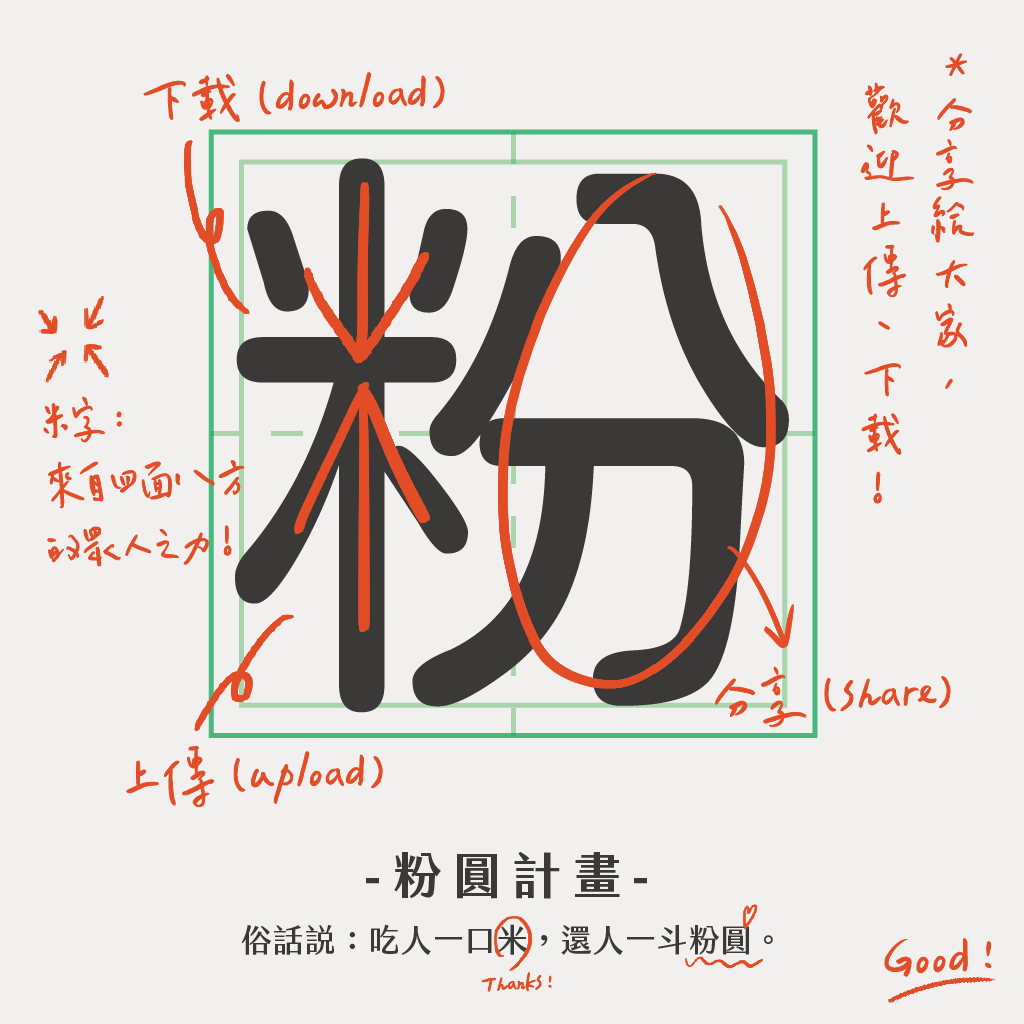 下載 (download)
*分享給大家，
歡迎上傳、下載！
粉
米字：
來自四面八方
的眾人之力！
分享 (share)
上傳 (upload)
-粉圓計畫-
俗話説：吃人一口米，還人一斗粉圓。
Thanks!
Good!